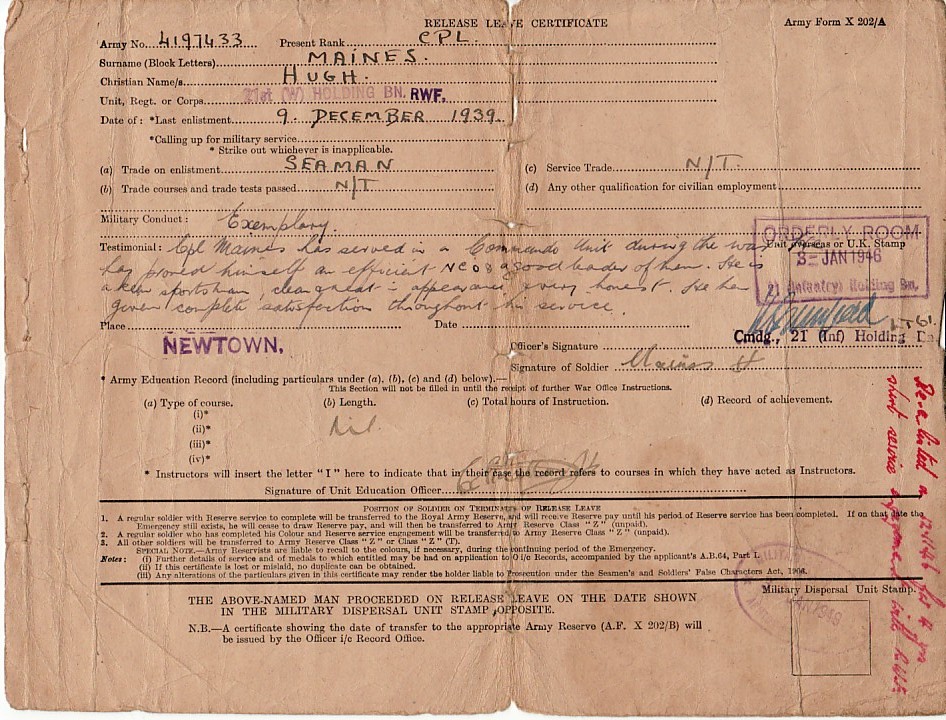 RELEASE LEAVE CERTIFICATE Army Form X 202/A
Army No. 4197433 Present Rank CPL.
Surname (Block Letters) MAINES.
Christian Name/s HUGH.
Unit, Regt. or Corps 21st (W) HOLDING BN. RWF.
Date of : *Last enlistment 9. DECEMBER 1939.
*Calling up for military service
* Strike out whichever is inapplicable.
(a) Trade on enlistment SEAMAN (c) Service Trade N/T.
(b) Trade courses and trade tests passed N/T (d) Any other qualification for civilian employment
Military Conduct : Exemplary.
Testimonial : Cpl Maines has served in a Commando Unit during the war,
has proved himself an efficient NCO & a good leader of men. He is
a keen sportsman, clean & neat in appearance & very honest. He has
given complete satisfaction throughout his service.
ORDERLY ROOM
Unit overseas or U.K. Stamp
3- JAN 1946
21 (Infantry) Holding Bn.
Place Date
NEWTOWN,
Officer's Signature Cmdg., 21 (Inf) Holding Bn.
Signature of Soldier Maines H
* Army Education Record (including particulars under (a), (b), (c) and (d) below).—
This Section will not be filled in until the receipt of further War Office Instructions.
(a) Type of course. (b) Length. (c) Total hours of Instruction. (d) Record of achievement.
(i)*
(ii)* Nil.
(iii)*
(iv)*
* Instructors will insert the letter "I" here to indicate that in their case the record refers to courses in which they have acted as Instructors.
Signature of Unit Education Officer
POSITION OF SOLDIER ON TERMINATION OF RELEASE LEAVE
1. A regular soldier with Reserve service to complete will be transferred to the Royal Army Reserve, and will receive Reserve pay until his period of Reserve service has been completed. If on that date the
Emergency still exists, he will cease to draw Reserve pay, and will then be transferred to Army Reserve Class "Z" (unpaid).
2. A regular soldier who has completed his Colour and Reserve service engagement will be transferred to Army Reserve Class "Z" (unpaid).
3. All other soldiers will be transferred to Army Reserve Class "Z" or Class "Z" (T).
SPECIAL NOTE.—Army Reservists are liable to recall to the colours, if necessary, during the continuing period of the Emergency.
Notes : (i) Further details of service and of medals to which entitled may be had on application to O i/c Records, accompanied by the applicant's A.B.64, Part I.
(ii) If this certificate is lost or mislaid, no duplicate can be obtained.
(iii) Any alterations of the particulars given in this certificate may render the holder liable to prosecution under the Seamen's and Soldiers' False Characters Act, 1906.
Military Dispersal Unit Stamp.
THE ABOVE-NAMED MAN PROCEEDED ON RELEASE LEAVE ON THE DATE SHOWN
IN THE MILITARY DISPERSAL UNIT STAMP OPPOSITE.
N.B.—A certificate showing the date of transfer to the appropriate Army Reserve (A.F. X 202/B) will
be issued by the Officer i/c Record Office.
MILITARY
short service